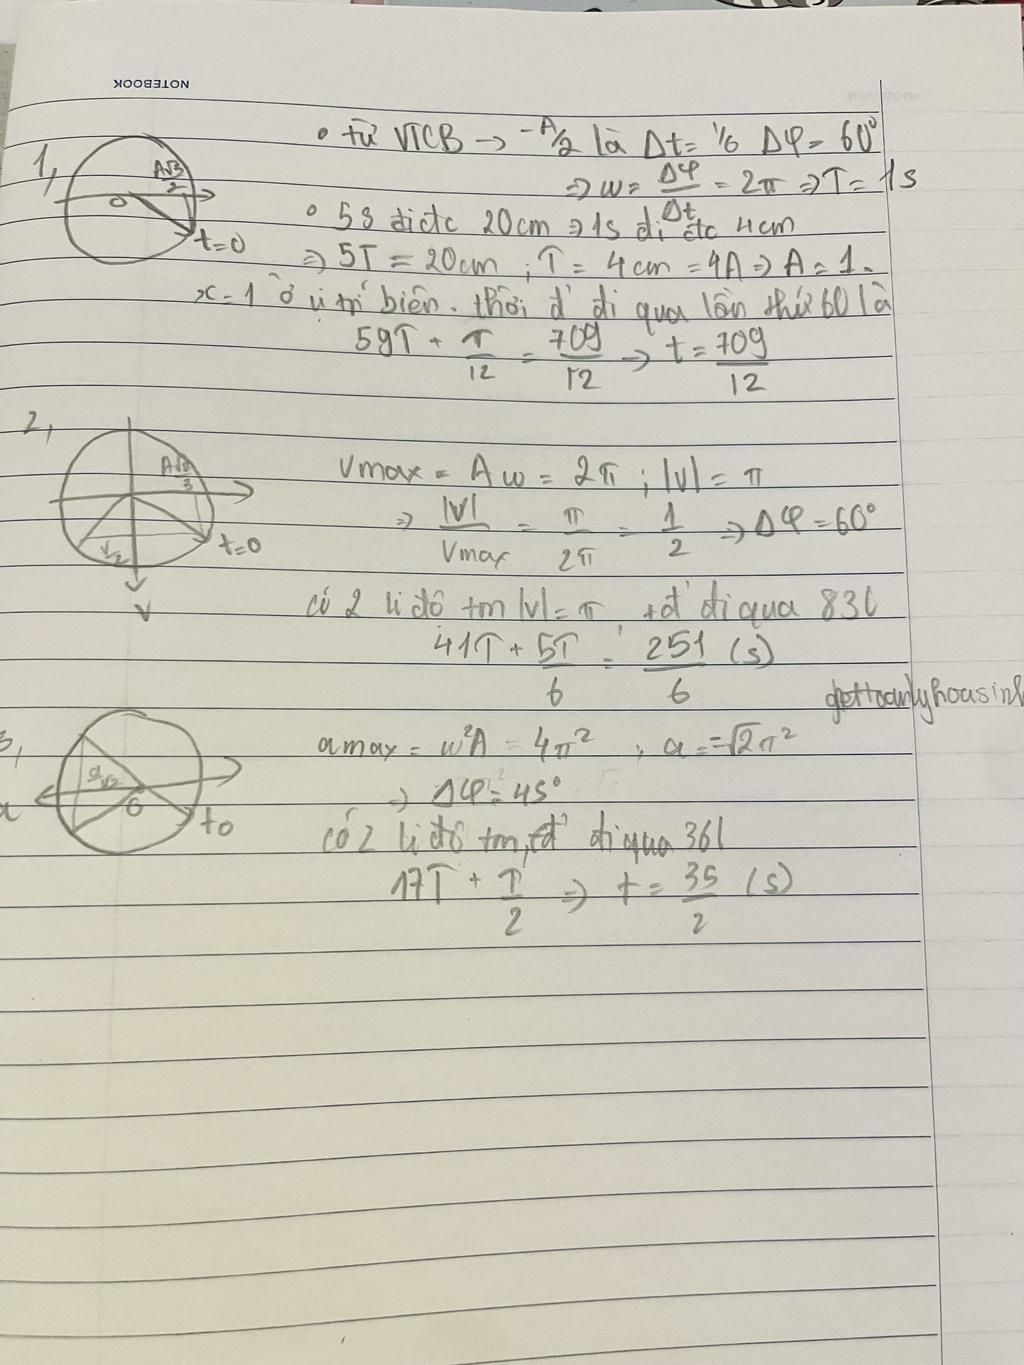 NOTEBOOK
1, • từ VTCB → -A/2 là Δt = 1/6 Δφ = 60°
A√3/2
O
⇒ w = Δφ/Δt = 2π ⇒ T = 1s
• 5s đi đc 20cm ⇒ 1s đi đc 4cm
t=0
⇒ 5T = 20cm ; T = 4cm = 4A ⇒ A = 1.
x = 1 ở vị trí biên. thời đ' đi qua lần thứ 60 là
59T + T/12 = 709/12 → t = 709/12
2,
Vmax = Aw = 2π ; |v| = π
⇒ |v|/Vmax = π/2π = 1/2 ⇒ Δφ = 60°
t=0
V
có 2 li độ tm |v| = π, tđ' đi qua 83l
41T + 5T/6 = 251/6 (s)
3, amax = w²A = 4π² ; a = -√2π²
a
O
⇒ Δφ = 45°
to
có 2 li độ tm, tđ' đi qua 36l
17T + T/2 ⇒ t = 35/2 (s)